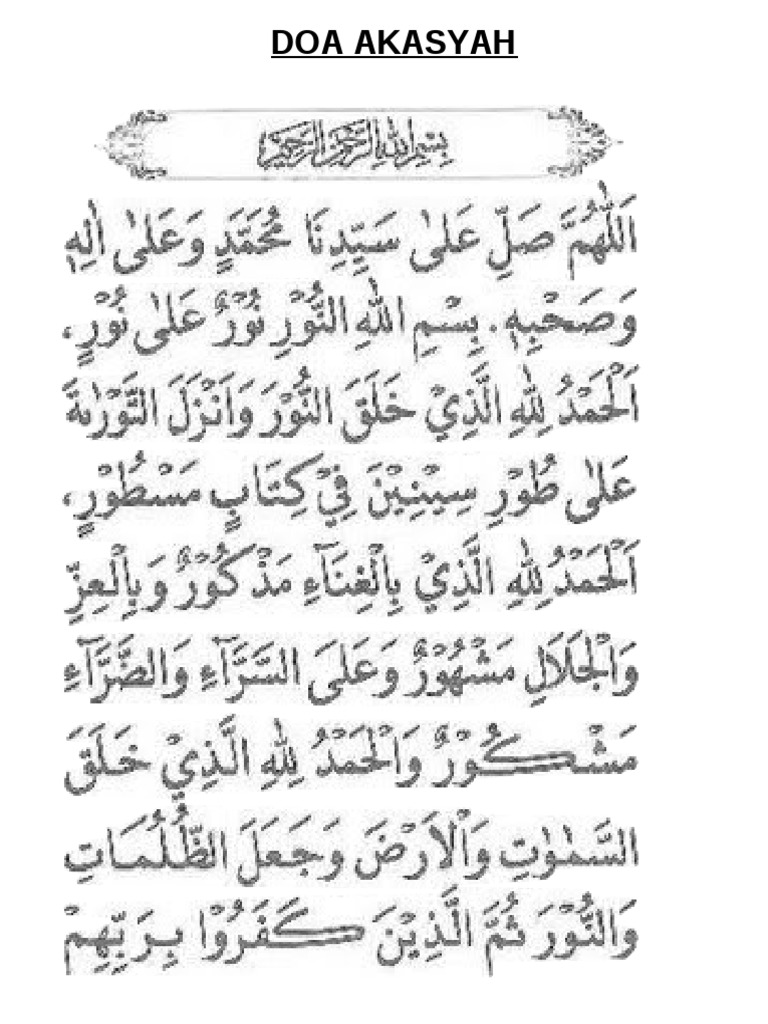 DOA AKASYAH
بِسْمِ اللهِ الرَّحْمٰنِ الرَّحِيْمِ
اَللّٰهُمَّ صَلِّ عَلٰى سَيِّدِنَا مُحَمَّدٍ وَعَلٰى اٰلِهٖ
وَصَحْبِهٖ. بِسْمِ اللهِ النُّوْرِ نُوْرٌ عَلٰى نُوْرٍ،
اَلْحَمْدُ لِلّٰهِ الَّذِيْ خَلَقَ النُّوْرَ وَاَنْزَلَ التَّوْرٰىةَ
عَلٰى طُوْرِ سِيْنِيْنَ فِيْ كِتَابٍ مَسْطُوْرٍ،
اَلْحَمْدُ لِلّٰهِ الَّذِيْ بِالْغِنَآءِ مَذْكُوْرٌ وَبِالْعِزِّ
وَالْجَلَالِ مَشْهُوْرٌ وَعَلَى السَّرَّآءِ وَالضَّرَّآءِ
مَشْكُوْرٌ وَالْحَمْدُ لِلّٰهِ الَّذِيْ خَلَقَ
السَّمٰوٰتِ وَالْاَرْضَ وَجَعَلَ الظُّلُمَاتِ
وَالنُّوْرَ ثُمَّ الَّذِيْنَ كَفَرُوْا بِرَبِّهِمْ